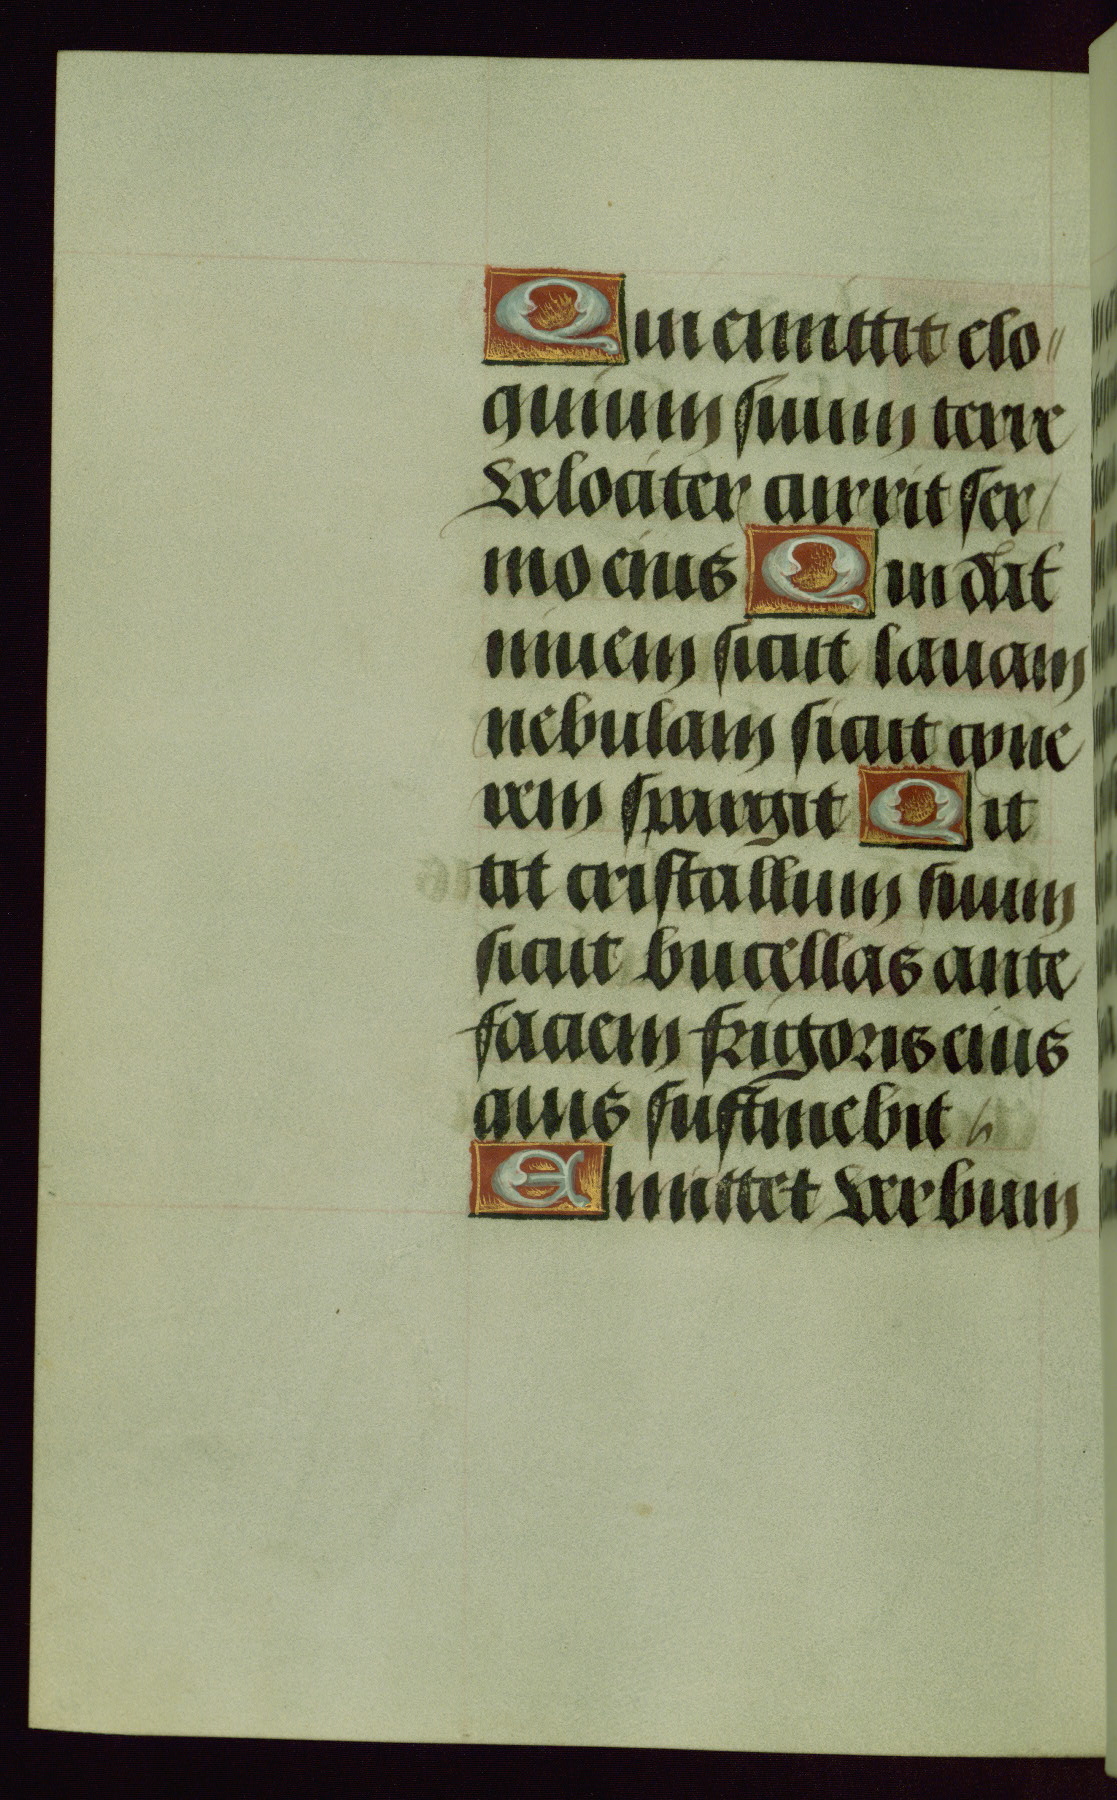 Qui emittit elo
quium suum terre
velociter currit ser
mo eius Qui dat
niuem sicut lanam
nebulam sicut cyne
rem spargit Qit
tit cristallum suum
sicut bucellas ante
faciem frigoris eius
quis sustinebit
Emittet verbum